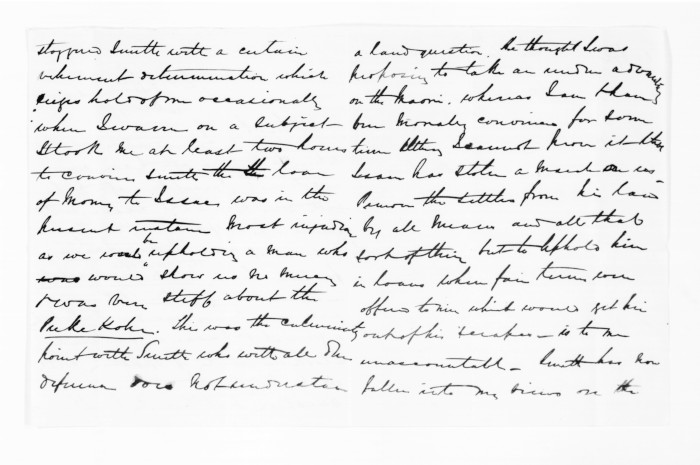 stopped Smith with a certain
vehement determination which
seizes hold of me occasionally
when I warm on a subject
It took me at least two hours
to convince Smith the the loan
of Money to Isaac was in the
present instance most injudicious
as we would be upholding a man who
was would show us no mercy
& was very stiff about the
Puke Kohe. This was the culminating
point with Smith who with all due
deference does not understand
a land question. He thought I was
proposing to take an undue advantage
on the Maori. whereas I am & have
been Morally convinced for some
time tho I cannot prove it that
Isaac has stolen a march on us
Remove the settlers from his land
by all means and all that
sort of thing but to Uphold him
in loans when fair terms were
offered to him which would get him
out of his scrapes - is to me
unaccountable - Smith has now
fallen into my views on the